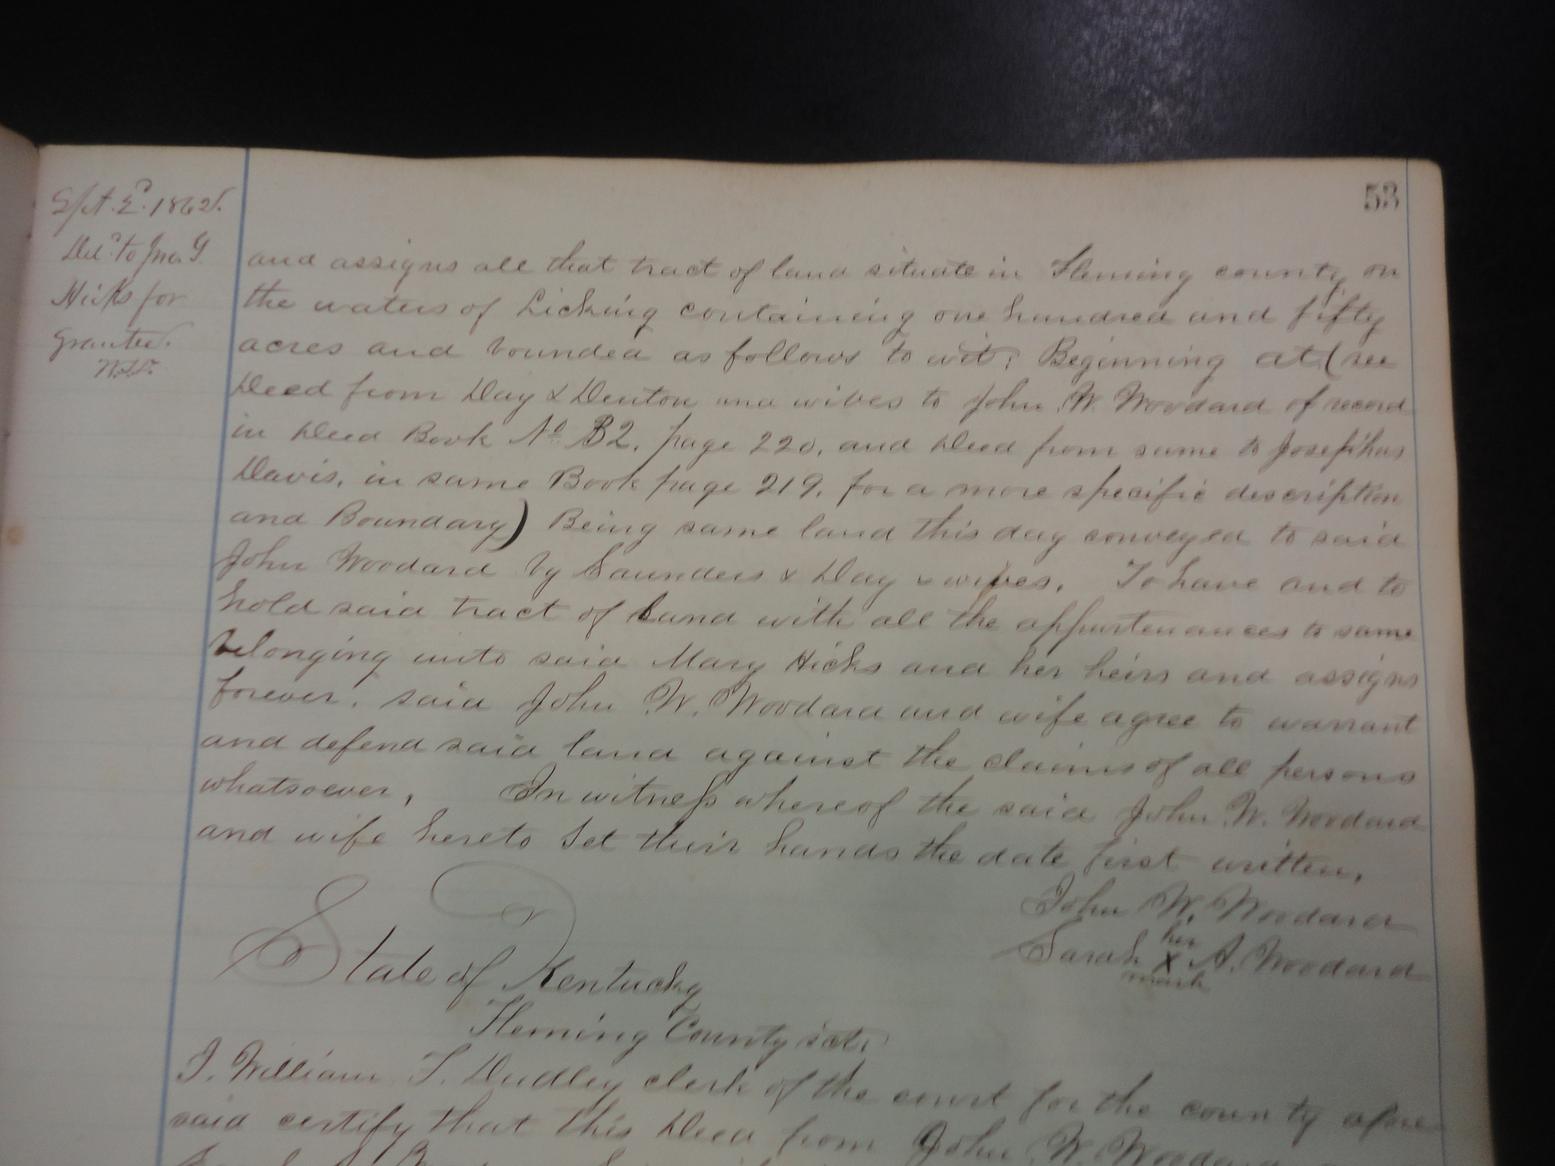 53
Sept. 2d. 1862.
Del.d to Jno. G
Hicks for
Grantee.
and assigns all that tract of land situate in Fleming county on
the waters of Licking containing one hundred and fifty
acres and bounded as follows to wit: Beginning at (see
Deed from Day & Denton and wives to John W. Woodard of record
in Deed Book No. 32, page 220, and Deed from same to Josephus
Davis, in same Book page 219, for a more specific description
and Boundary) Being same land this day conveyed to said
John Woodard by Saunders & Day & wives. To have and to
hold said tract of land with all the appurtenances to same
belonging unto said Mary Hicks and her heirs and assigns
forever, said John W. Woodard and wife agree to warrant
and defend said land against the claims of all persons
whatsoever, In witness whereof the said John W. Woodard
and wife hereto set their hands the date first written.
John W. Woodard
her
Sarah X A. Woodard
mark
State of Kentucky
Fleming County sct.
I. William T. Dudley clerk of the court for the county afore
said certify that this Deed from John W. Woodard